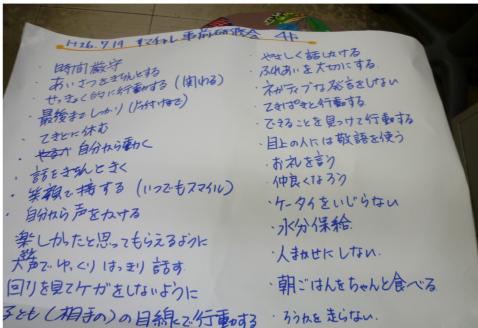 H26.7.19 サマチャレ 事前研修会 4下
・時間厳守
・あいさつをきちんとする
・せっきょく的に行動する(関わる)
・最後までしっかり(片付けまで)
・てきどに休む
・自分から動く
・話をきちんときく
・笑顔で接する(いつでもスマイル)
・自分から声をかける
楽しかったと思ってもらえるように
大声でゆっくりはっきり話す
回りを見てケガをしないように
子ども(相手の)の目線で行動する
・やさしく話しかける
・ふれあいを大切にする
・ネガティブな発言をしない
・てきぱきと行動する
・できることを見つけて行動する
・目上の人には敬語を使う
・お礼を言う
・仲良くなろう
・ケータイをいじらない
・水分保給
・人まかせにしない
・朝ごはんをちゃんと食べる
・ろうかを走らない